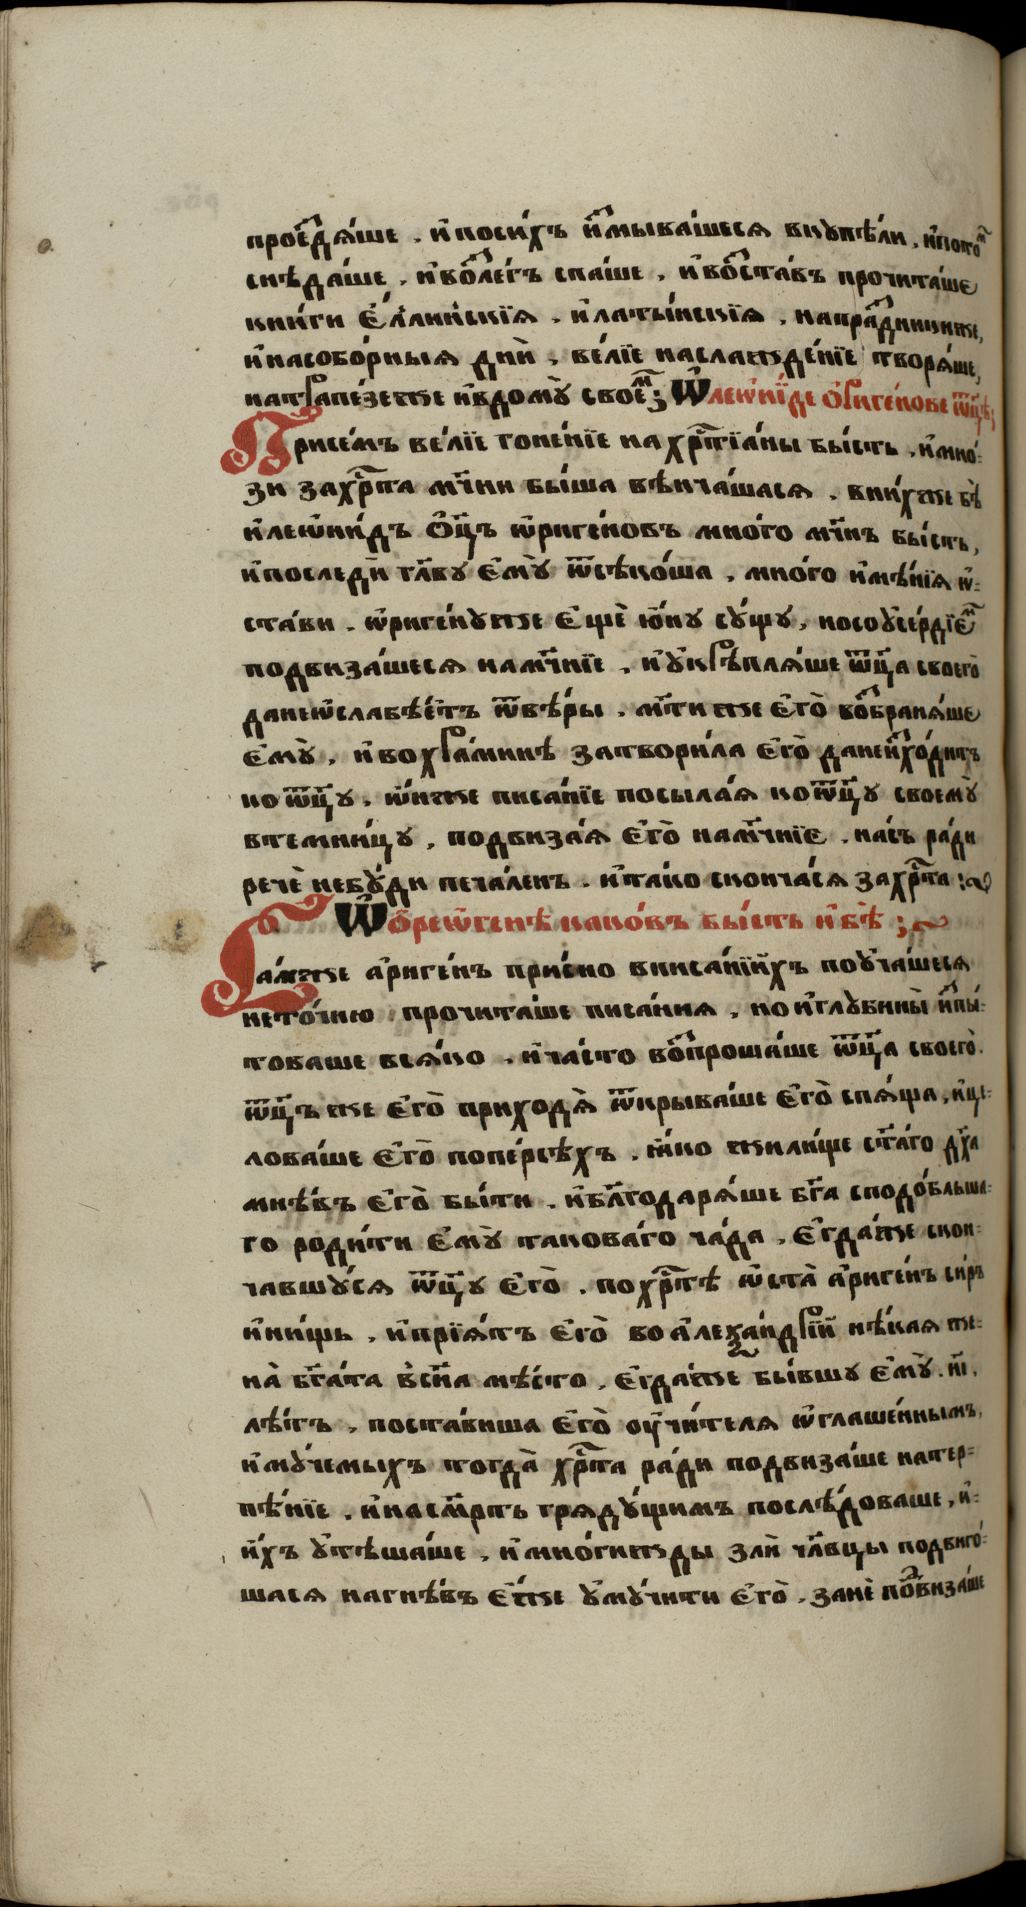 проє́здѧ́ше . и҆ посих̾ъ и҆змыва́шесѧ вкупѣ́ли , и҆пото́м
снѣда́ше , и҆ возле́гъ спа́ше , и҆ воста́въ прочита́ше
кни́ги є҆́ллинскїѧ . и҆ латы́нскїѧ . на пра́здникиже,
и҆ на собо́рныѧ дни̑ , ве́лїе наслажде́нїе творѧ́ше,
на трапе́зеже и҆ в дому̀ свое́м ; Ѡ҆ леѡни́де ѻ҆ригенове ѿц҃ѣ ;
При се́мъ ве́лїе гоне́нїе на хрⷭ҇тїа́ны бы́сть , и҆ мно́-
зи за хрⷭ҇та мч҃ни бы́ша вѣнча́шасѧ . в ни́хже бѣ̀
и҆ леѡни́дъ ѻ҆ц҃ъ ѡ҆риге́новъ мно́го мч҃нъ бы́сть ,
и҆ последи́ гл҃ву є҆мꙋ̀ ѿсѣко́ша , мно́го и҆мѣ́нїѧ ѡ҆-
ста́ви . ѡ҆риге́нꙋже є҆щѐ ю҆́ну сꙋ́щу , но соу҆се́рдїем
подвиза́шесѧ на мч҃нїе , и҆ ᲂу҆крѣплѧ́ше ѿц҃а своего̀
да не ѡ҆слабѣ́етъ ѿ вѣ́ры . мт҃и же є҆го̀ возбранѧ́ше
є҆мꙋ̀ , и҆ во хра́минѣ затвори́ла є҆го̀ да не и҆схо́дитъ
ко ѿц҃у . ѡ҆́нже писа́нїе посыла́ѧ ко ѿц҃у своемꙋ̀
в темни́цу , подвиза́ѧ є҆го̀ на мч҃нїе . на́съ ра́ди
речѐ не бꙋ́ди печа́ленъ . и҆ та́ко сконча́сѧ за хрⷭ҇та :~
Ѡ҆ ѻ҆реѡ҆генѣ како́въ бы́сть и҆ вѣ̀ ; ~
Са́мже а҆риге́нъ при́сно в писа́нїи́хъ поу҆ча́шесѧ
не то́чїю прочита́ше писа́ниѧ , но и҆ глꙋбины̀ и҆спы́-
товаше всѧ́ко . и҆ ча́сто вопроша́ше ѿц҃а своего̀ .
ѿц҃ъ же є҆го̀ приходѧ̀ ѿкрыва́ше є҆го̀ спѧ́ща , и҆ це-
лова́ше є҆го̀ по пе́рсѣхъ . ꙗ҆́ко жили́ще ст҃а́го дх҃а
мнѣ́въ є҆го̀ бы́ти . и҆ бл҃годарѧ́ше бг҃а сподо́бльша-
го роди́ти є҆мꙋ̀ такова́го ча́да . є҆гда́же скон-
чавшꙋ́сѧ ѿц҃у є҆го̀ . по хрⷭ҇тѣ ѡ҆ста̀ а҆риге́нъ си́ръ
и҆ ни́щь , и҆ прїѧ́тъ є҆го̀ во а҆леѯа́ндрїи нѣ́каѧ же-
на̀ бг҃а́та в̾ сн҃а мѣ́сто . є҆гда́же бы́вшу є҆мꙋ̀ . н҃і .
лѣ́тъ , поста́виша є҆го̀ ᲂу҆чи́телѧ ѡ҆глаше́ннымъ,
и҆ мꙋ́чемыхъ тогда̀ хрⷭ҇та ра́ди подвиза́ше на тер-
пѣ́нїе . и҆ на сме́рть грѧдꙋ́щимъ послѣ́доваше , и҆-
и́хъ ᲂу҆тѣша́ше . и҆ мно́гижды злїи чл҃вцы подвиго́-
шасѧ на гнѣ́въ є҆́же ᲂу҆мꙋ́чити є҆го̀ . занѐ подвиза́ше